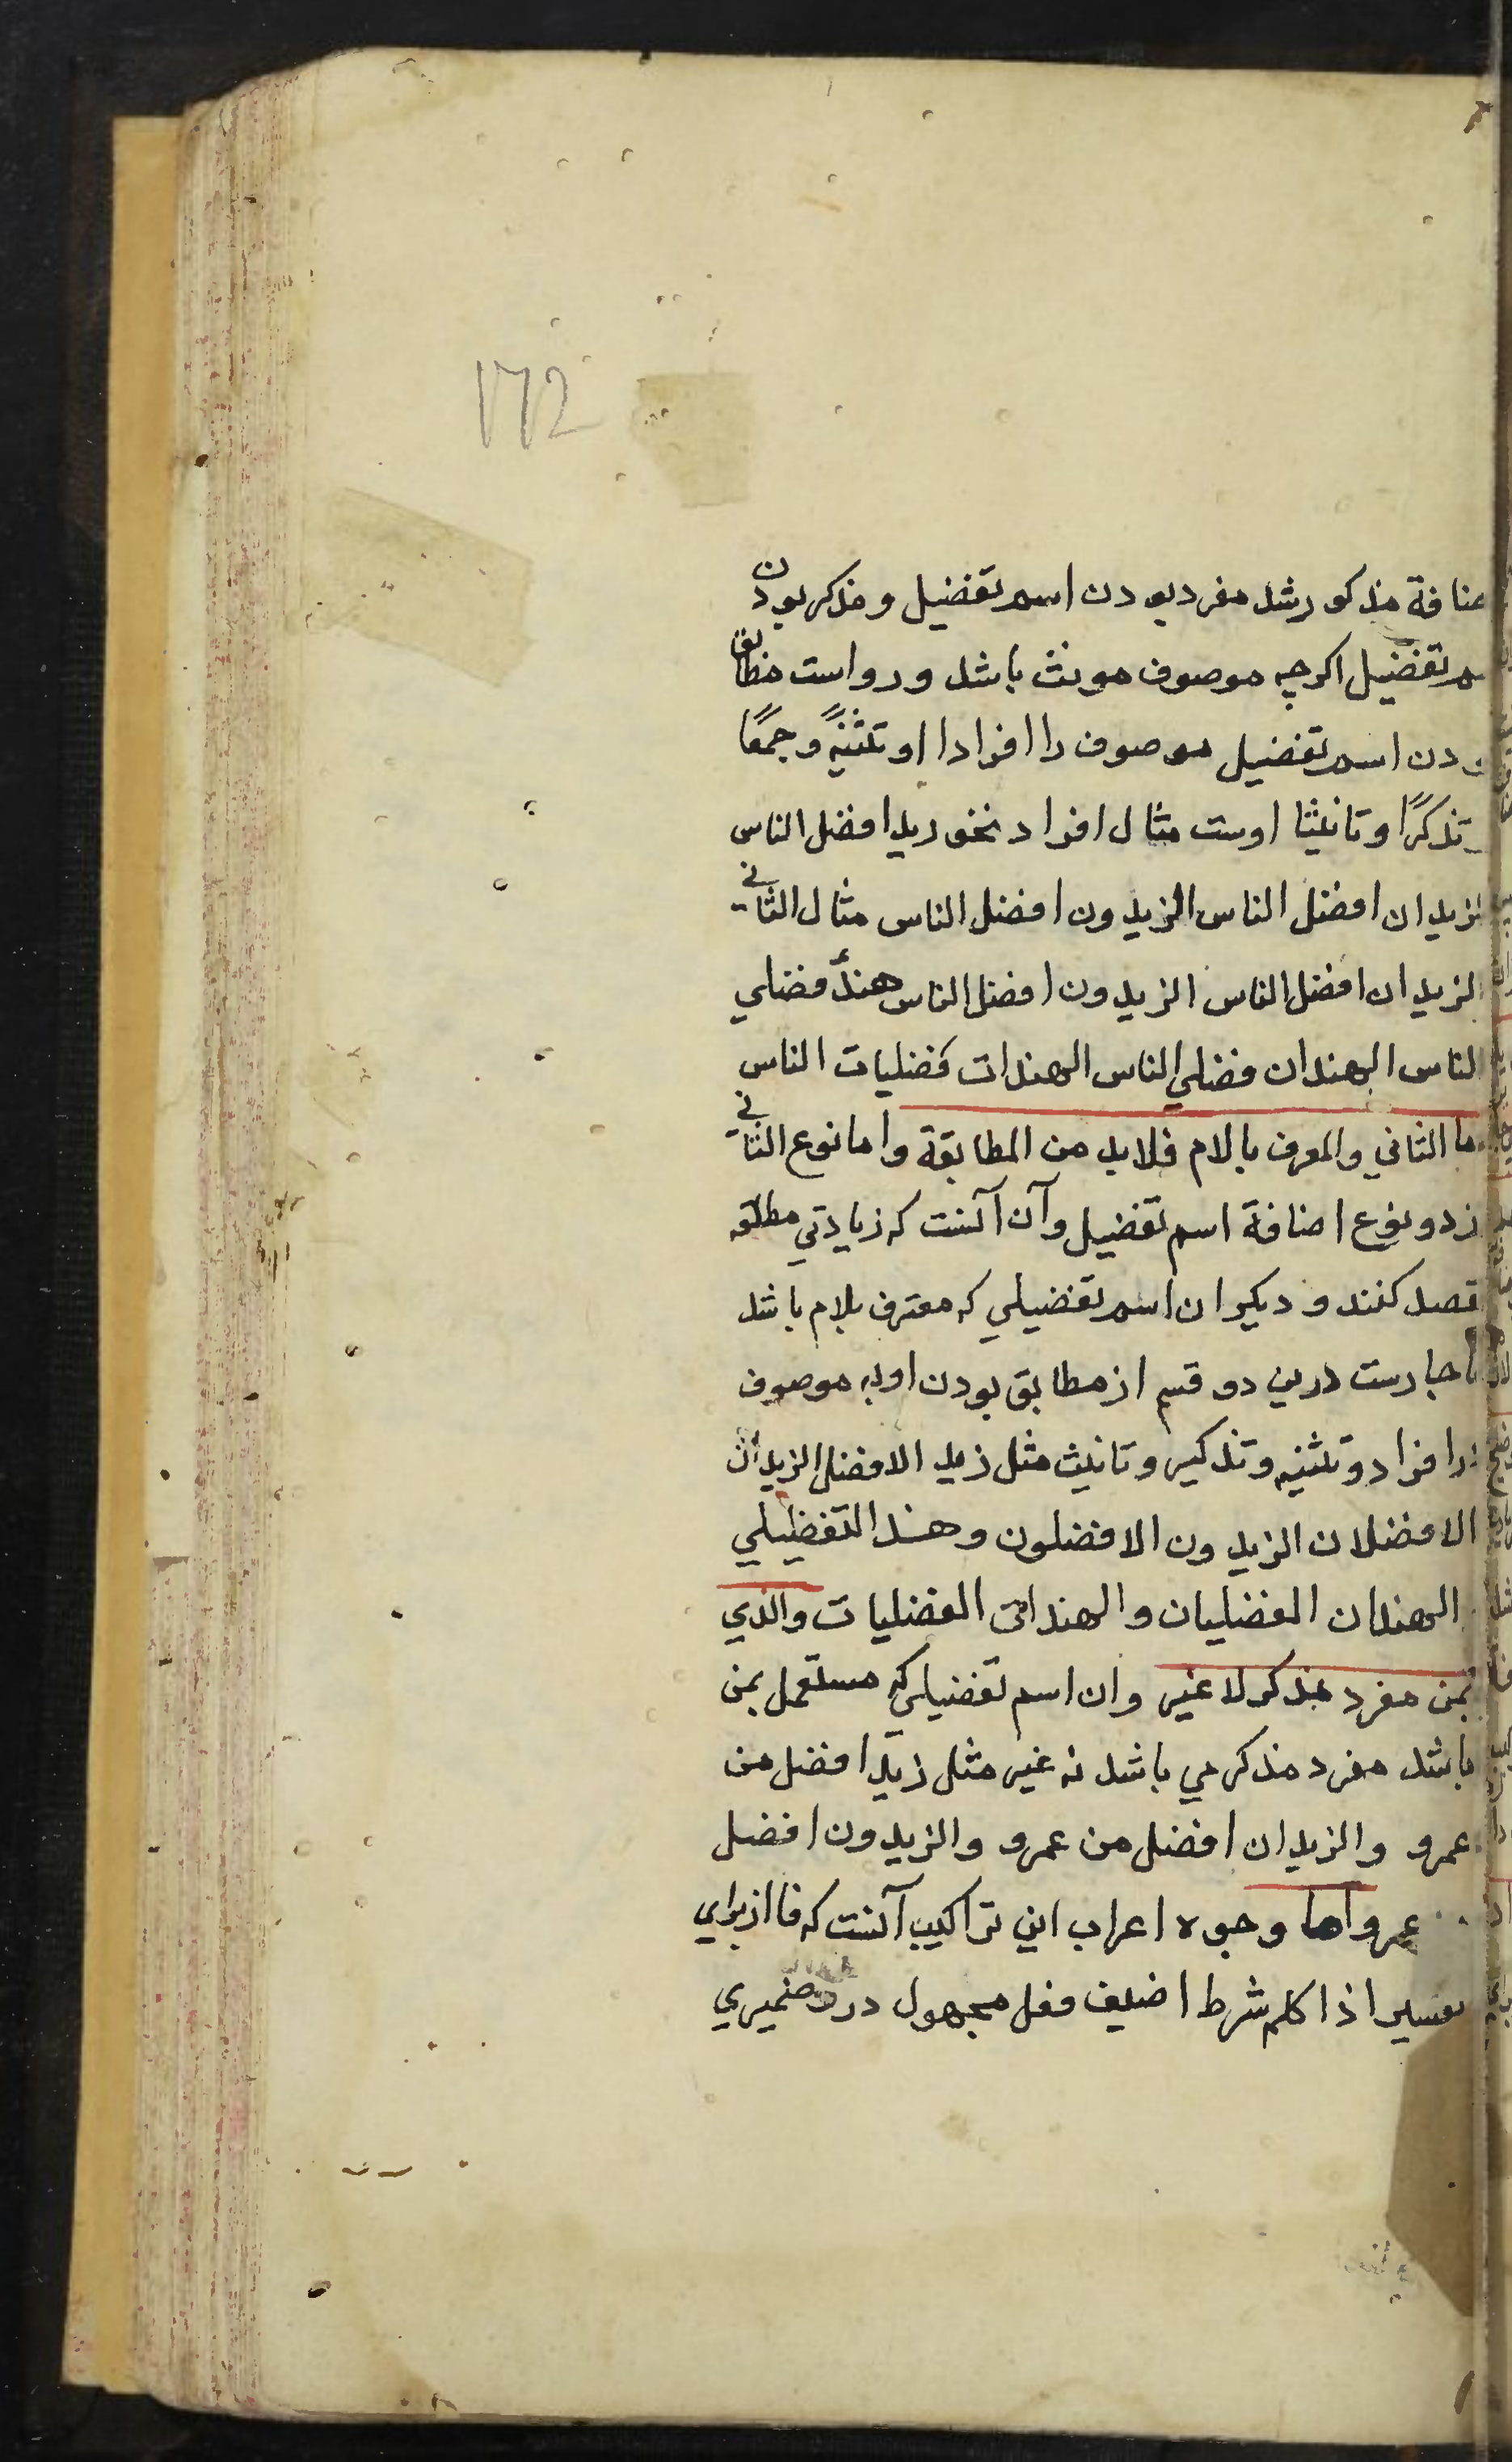 172
ضافة مذکور شد مفرد بودن اسم تفضیل و مذکر بودن
سم تفضیل اکرچه موصوف مونث باشد و رواست مطابق
بودن اسم تفضیل موصوف را افرادا او تثنیةً و جمعًا
تذکرًا و تانیثا اوست مثال افراد نحو زید افضل الناس
الزیدان افضل الناس الزیدون افضل الناس مثال الثانی
الزیدان افضل الناس الزیدون افضل الناس هندٌ فضلی
الناس الهندان فضلی الناس الهندات فضلیات الناس
ما الثانی والمعرف بالام فلابد من المطابقة واما نوع الثانی
از دو نوع اضافة اسم تفضیل و آن آنست که زیادتی مطلقه
قصد کنند و دیکر ان اسم تفضیلی که معترف بلام باشد
درین دو قسم از مطابق بودن او به موصوف
در افراد و تثنیه و تذکیر و تانیث مثل زید الافضل الزیدان
الافضلان الزیدون الافضلون وهند التفظیلی
الهندان الفضلیان والهندات الفضلیات والذی
بمن مفرد مذکر لا غیر و ان اسم تفضیلی که مستعمل بمن
باشد مفرد مذکر می باشد نه غیر مثل زید افضل من
عمرو والزیدان افضل من عمرو والزیدون افضل
عمرو اما وجوه اعراب این تراکیب آنست که فا از برای
تفسیر اذا کلم شرط اضیف فعل مجهول درو ضمیری